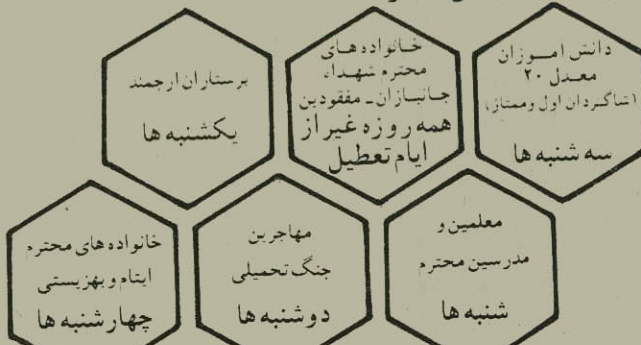 دانش آموزان
معدل ۲۰
(شاگردان اول وممتاز)
سه شنبه ها
خانواده های
محترم شهداء
جانبازان - مفقودین
همه روزه غیر از
ایام تعطیل
پرستاران ارجمند
یکشنبه ها
معلمین و
مدرسین محترم
شنبه ها
مهاجرین
جنگ تحمیلی
دوشنبه ها
خانواده های محترم
ایتام وبهزیستی
چهارشنبه ها